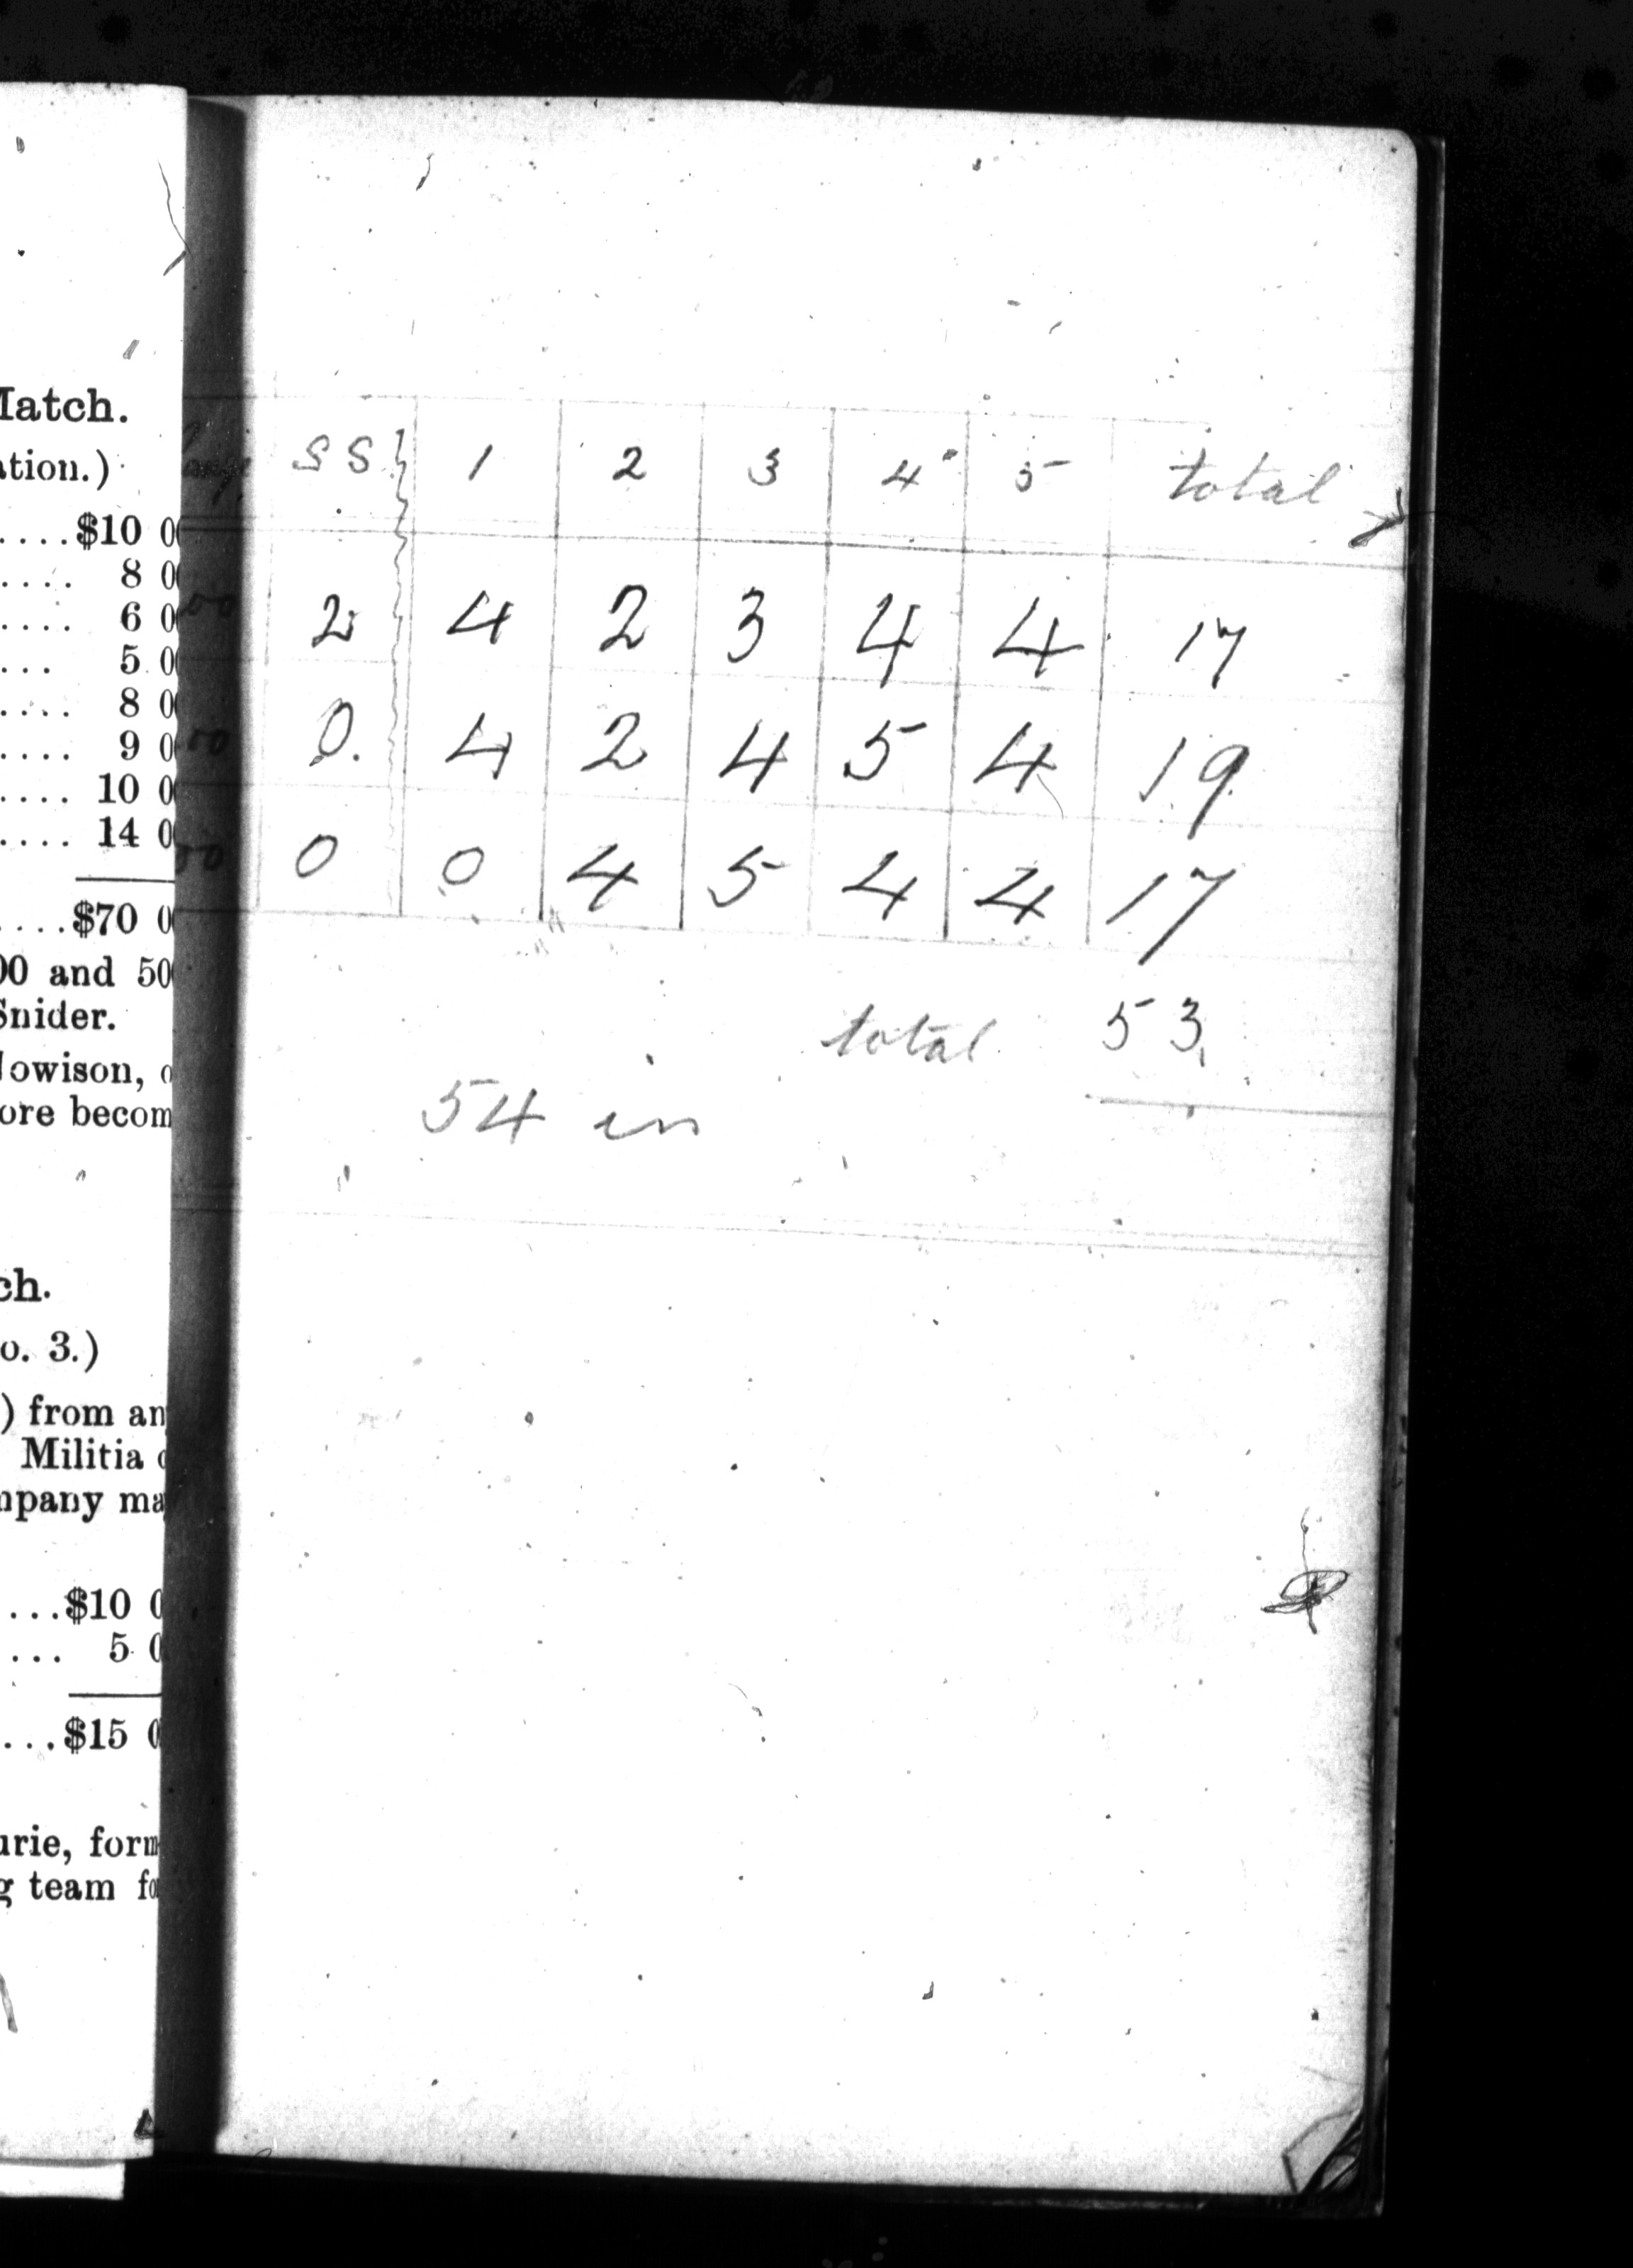 Match.
ation.)
....$10 0
.... 8 0
.... 6 0
... 5 0
.... 8 0
.... 9 0
.... 10 0
.... 14 0
....$70 0
00 and 50
Snider.
owison, o
ore becom
ch.
o. 3.)
) from an
Militia o
mpany ma
...$10 0
... 5 0
...$15 0
urie, form
g team fo
ange SS 1 2 3 4 5 total
00 2 4 2 3 4 4 17
00 0. 4 2 4 5 4 19
00 0 0 4 5 4 4 17
total 53
54 in